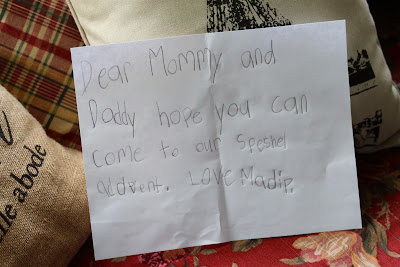 Dear Mommy and
Daddy hope you can
come to our Speshel
advent. LOVE Madip.
lle abode